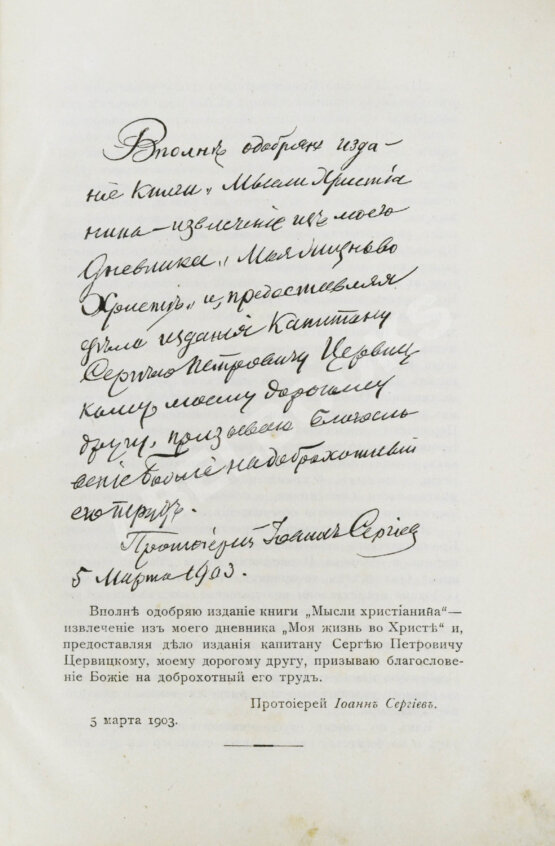 Вполнѣ одобряю изда-
ніе книги „Мысли Христіа
нина — извлеченіе изъ моего
Дневника „Моя жизнь во
Христѣ“ и, предоставляя
дѣло изданія Капитану
Сергѣю Петровичу Цервиц
кому, моему дорогому
другу, призываю благосло
веніе Божіе на доброхотный
его трудъ.
Протоіерей Іоаннъ Сергіевъ
5 Марта 1903.
Вполнѣ одобряю изданіе книги „Мысли христіанина“—
извлеченіе изъ моего дневника „Моя жизнь во Христѣ“ и,
предоставляя дѣло изданія капитану Сергѣю Петровичу
Цервицкому, моему дорогому другу, призываю благослове-
ніе Божіе на доброхотный его трудъ.
Протоіерей Іоаннъ Сергіевъ.
5 марта 1903.